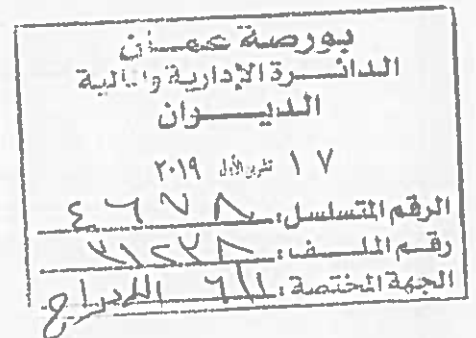 بورصة عمان
الدائرة الإدارية والمالية
الديوان
١٧ تشرين الأول ٢٠١٩
الرقم المتسلسل: ٤٦٧٨
رقم الملف: ٣١٢٣٨
الجهة المختصة: الإدراج